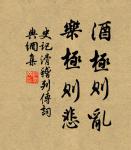 酒極則亂
樂極則悲
史記滑稽列傳詞
典網集